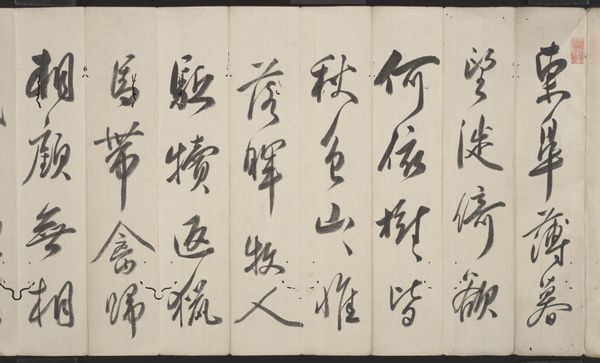 東皐薄暮
望徙倚欲
何依樹〻皆
秋色山〻惟
落暉牧人
驅犢返獵
馬帶禽歸
相顧無相